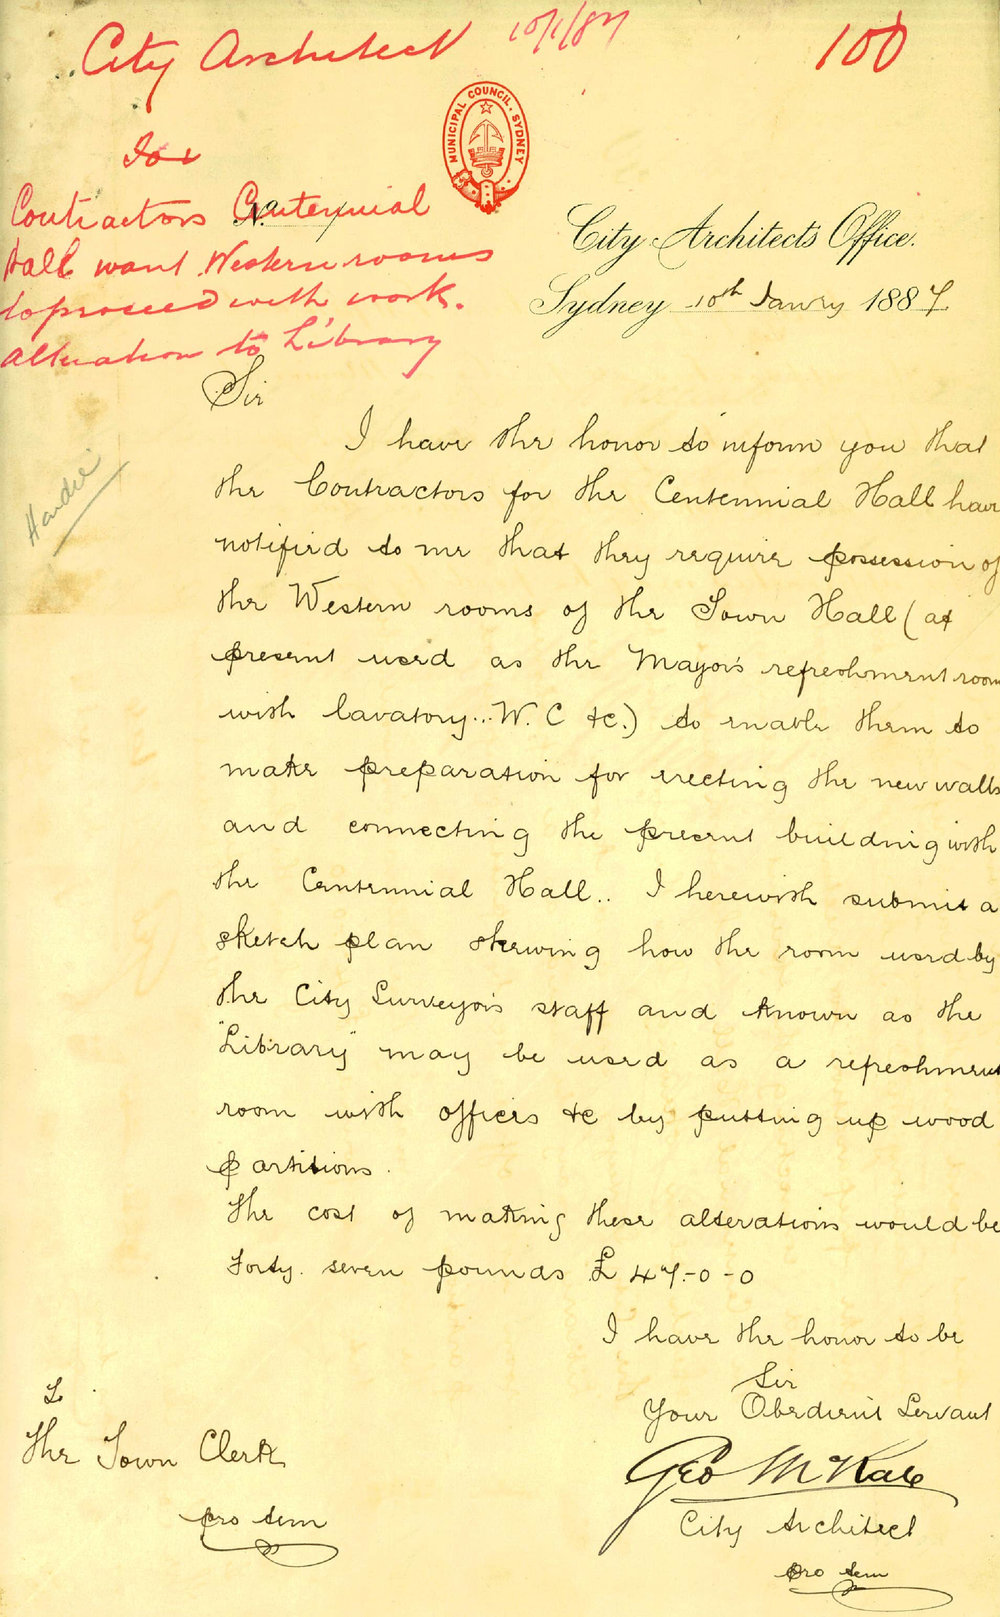 City Architect 10/1/87 100
MUNICIPAL COUNCIL. SYDNEY
For
Contractors Centennial
Hall want Western rooms
to proceed with work.
Alteration to Library
No.
City Architect's Office.
Sydney 10th Janry 1887
Sir
I have the honor to inform you that
the Contractors for the Centennial Hall have
notified to me that they require possession of
the Western rooms of the Town Hall (at
present used as the Mayor's refreshment room
with lavatory... W.C &c.) to enable them to
make preparation for erecting the new walls
and connecting the present building with
the Centennial Hall.. I herewith submit a
sketch plan shewing how the room used by
the City Surveyor's staff and known as the
"Library" may be used as a refreshment
room with offices &c by putting up wood
partitions.
The cost of making these alterations would be
Forty. seven pounds £47.-0-0
I have the honor to be
Sir
Your Obedient Servant
Geo McRae
City Architect
pro tem
To
The Town Clerk
pro tem